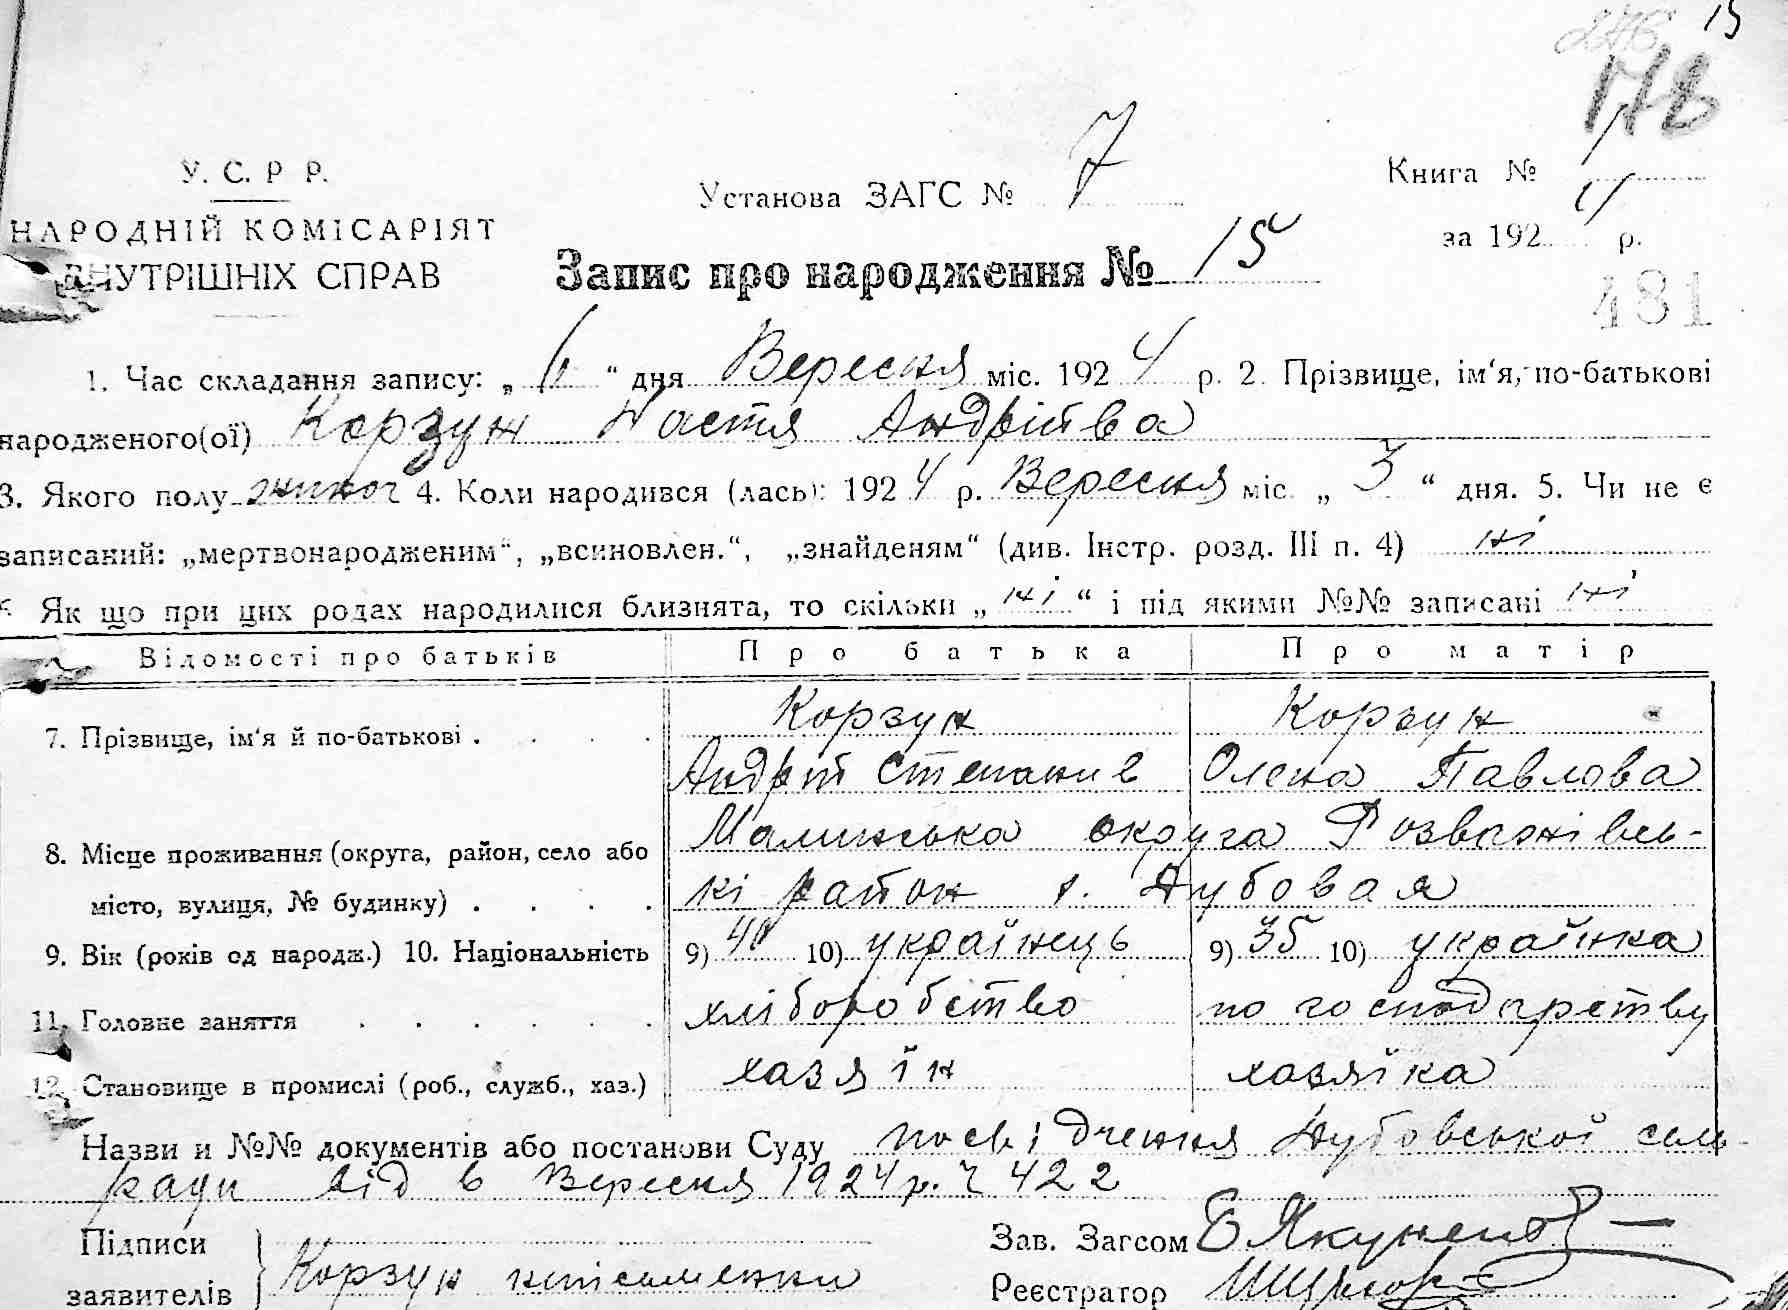 15
178
У. С. Р Р.
Установа ЗАГС № 7
Книга №
НАРОДНІЙ КОМІСАРІЯТ
за 192 4 р.
ВНУТРІШНІХ СПРАВ
Запис про народження № 15
481
1. Час складання запису: „ 6 “ дня Вересня міс. 192 4 р. 2. Прізвище, ім‘я, по-батькові
народженого(ої) Корзун Настя Андріїва
3. Якого полу жіноч 4. Коли народився (лась): 192 4 р. Вересня міс. „ 3 “ дня. 5. Чи не є
записаний: „мертвонародженим“, „всиновлен.“, „знайденям“ (див. Інстр. розд. III п. 4) ні
6 Як що при цих родах народилися близнята, то скільки „ ні “ і під якими №№ записані ні
Відомості про батьків Про батька Про матір
7. Прізвище, ім‘я й по-батькові . . . . Корзун Корзун
Андрій Степанив Олена Павлова
8. Місце проживання (округа, район, село або Малинська округа Розважівсь-
місто, вулиця, № будинку) . . . . кі район с. Дубовая
9. Вік (років од народж.) 10. Національність 9) 40 10) українець 9) 35 10) українка
11. Головне заняття . . . . . . хліборобство по господарству
12. Становище в промислі (роб., служб., хаз.) хазяїн хазяїка
Назви и №№ документів або постанови Суду посвідчення Дубовської сель-
ради від 6 Вересня 1924 р. Ч 422
Підписи
Зав. Загсом
заявителів Корзун неписьменни
Реєстратор